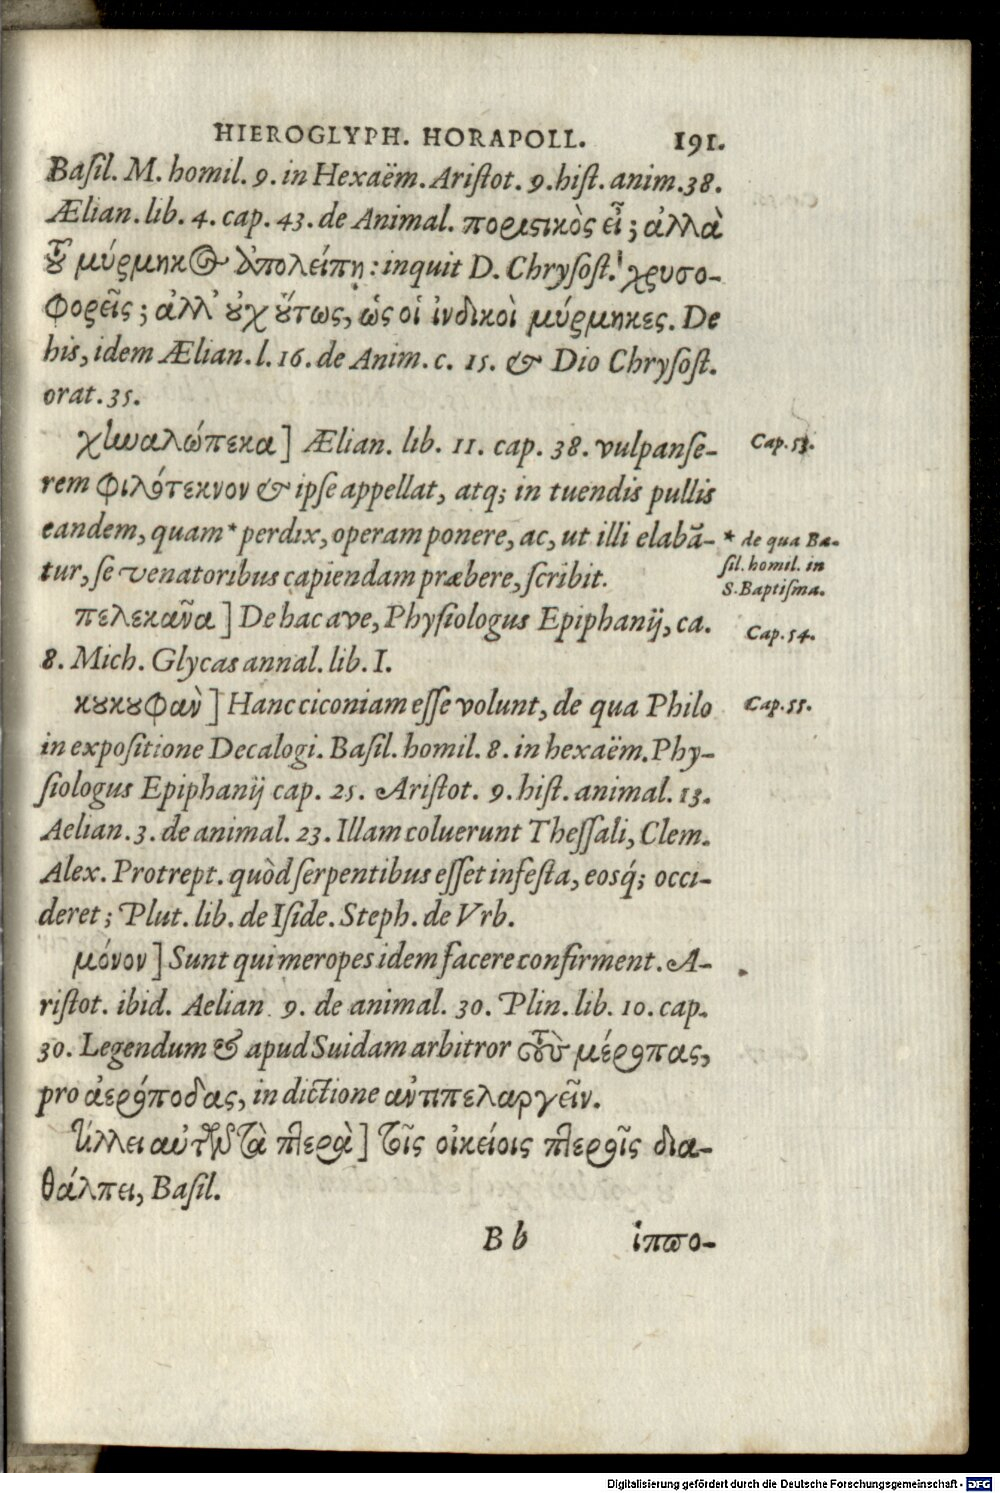 HIEROGLYPH. HORAPOLL. 191.
Baſil. M. homil. 9. in Hexaëm. Ariſtot. 9. hiſt. anim. 38.
Ælian. lib. 4. cap. 43. de Animal. ποριστικὸς εἶ; ἀλλὰ
τοῦ μύρμηκος ἀπολείπῃ: inquit D. Chryſoſt. χρυσο-
φορεῖς; ἀλλ' οὐχ οὕτως, ὡς οἱ ἰνδικοὶ μύρμηκες. De
his, idem Ælian. l. 16. de Anim. c. 15. & Dio Chryſoſt.
orat. 35.
χηναλώπεκα] Ælian. lib. 11. cap. 38. vulpanſe-
Cap. 53.
rem φιλότεκνον & ipſe appellat, atq; in tuendis pullis
eandem, quam* perdix, operam ponere, ac, ut illi elabā-
tur, ſe venatoribus capiendam præbere, ſcribit.
* de qua Ba-
ſil. homil. in
S. Baptiſma.
πελεκᾶνα] De hac ave, Phyſiologus Epiphanij, ca.
Cap. 54.
8. Mich. Glycas annal. lib. I.
κουκουφαν] Hanc ciconiam eſſe volunt, de qua Philo
Cap. 55.
in expoſitione Decalogi. Baſil. homil. 8. in hexaëm. Phy-
ſiologus Epiphanij cap. 25. Ariſtot. 9. hiſt. animal. 13.
Aelian. 3. de animal. 23. Illam coluerunt Theſſali, Clem.
Alex. Protrept. quòd ſerpentibus eſſet infeſta, eosq́; occi-
deret; Plut. lib. de Iſide. Steph. de Vrb.
μόνον] Sunt qui meropes idem facere confirment. A-
riſtot. ibid. Aelian. 9. de animal. 30. Plin. lib. 10. cap.
30. Legendum & apud Suidam arbitror μέροπας,
pro ἀερόποδας, in dictione ἀντιπελαργεῖν.
τίλλει αὐτῶν τὰ πτερὰ] τοῖς οἰκείοις πτεροῖς δια-
θάλπει, Baſil.
B b ἱππο-
Digitalisierung gefördert durch die Deutsche Forschungsgemeinschaft - DFG